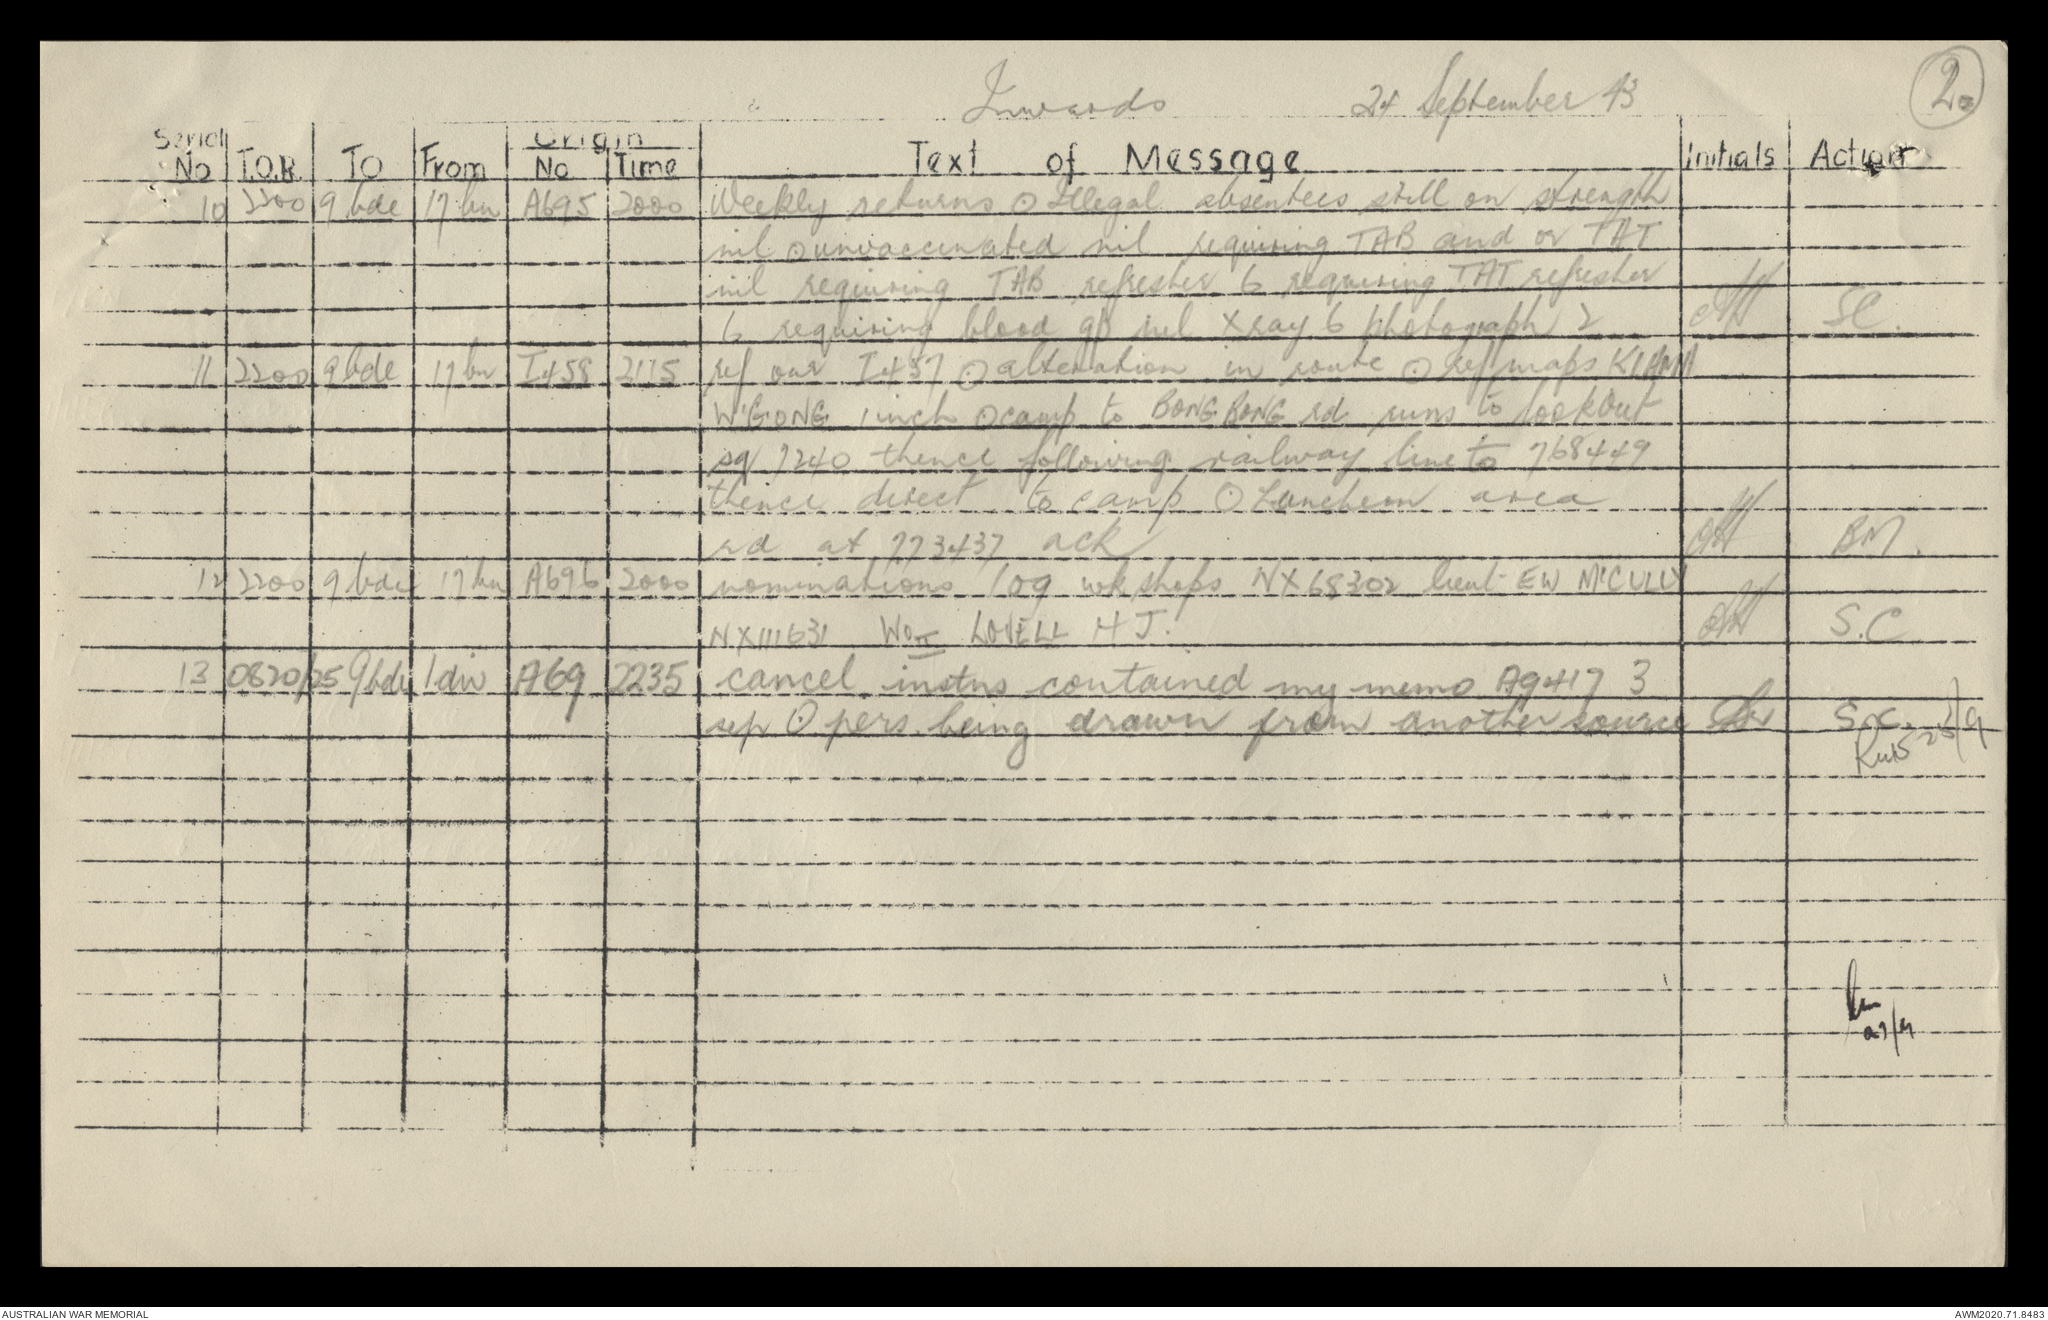 Inwards 24 September 43
2.
Serial Origin
No T.O.R. TO From No Time Text of Message Initials Action
10 2200 9 bde 17 bn A695 2000 Weekly returns ⊙ Illegal absentees still on strength
nil ⊙ unvaccinated nil requiring TAB and or TAT
nil requiring TAB refresher 6 requiring TAT refresher
6 requiring blood gp nil Xray 6 photograph 2 SC.
11 2200 9 bde 17 bn I458 2115 ref our I457 ⊙ alteration in route ⊙ ref maps KIAMA
W'GONG 1 inch ⊙ camp to BONG BONG rd runs to lookout
sq 7240 thence following railway line to 768449
thence direct to camp ⊙ Luncheon area
rd at 773437 ack BM.
12 2200 9 bde 17 bn A696 2000 nominations log wkshops NX68302 lieut EW McCULLY
NX111631 WO II LOVELL H J. S.C
13 0820/25 9 bde 1 div A69 2235 cancel instns contained my memo A9417 3
sep ⊙ pers. being drawn from another source S.C.
25/9
27/9
AUSTRALIAN WAR MEMORIAL AWM2020.71.8483